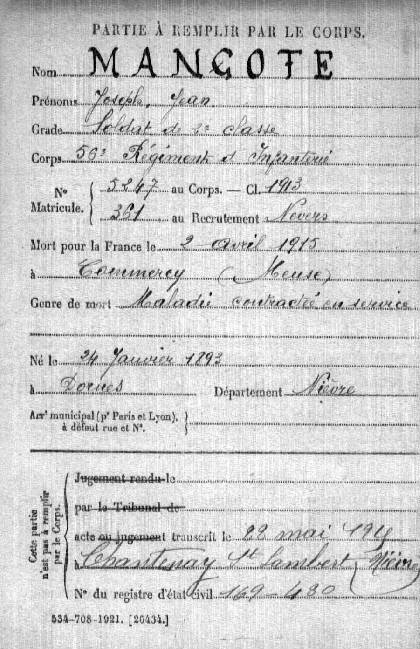 PARTIE À REMPLIR PAR LE CORPS.
Nom MANGOTE
Prénoms Joseph, Jean
Grade Soldat de 2e classe
Corps 56e Régiment d'Infanterie
N° Matricule. { 5247 au Corps. — Cl. 1913
361 au Recrutement Nevers
Mort pour la France le 2 avril 1915
à Commercy (Meuse)
Genre de mort Maladie contractée en service
Né le 24 Janvier 1893
à Dornes Département Nièvre
Arrt municipal (pr Paris et Lyon), à défaut rue et N°.
Cette partie n'est pas à remplir par le Corps.
Jugement rendu le
par le Tribunal de
acte ou jugement transcrit le 22 mai
à Chantenay St Imbert (Nièvre)
N° du registre d'état civil 169-430
534-708-1921. [26434.]